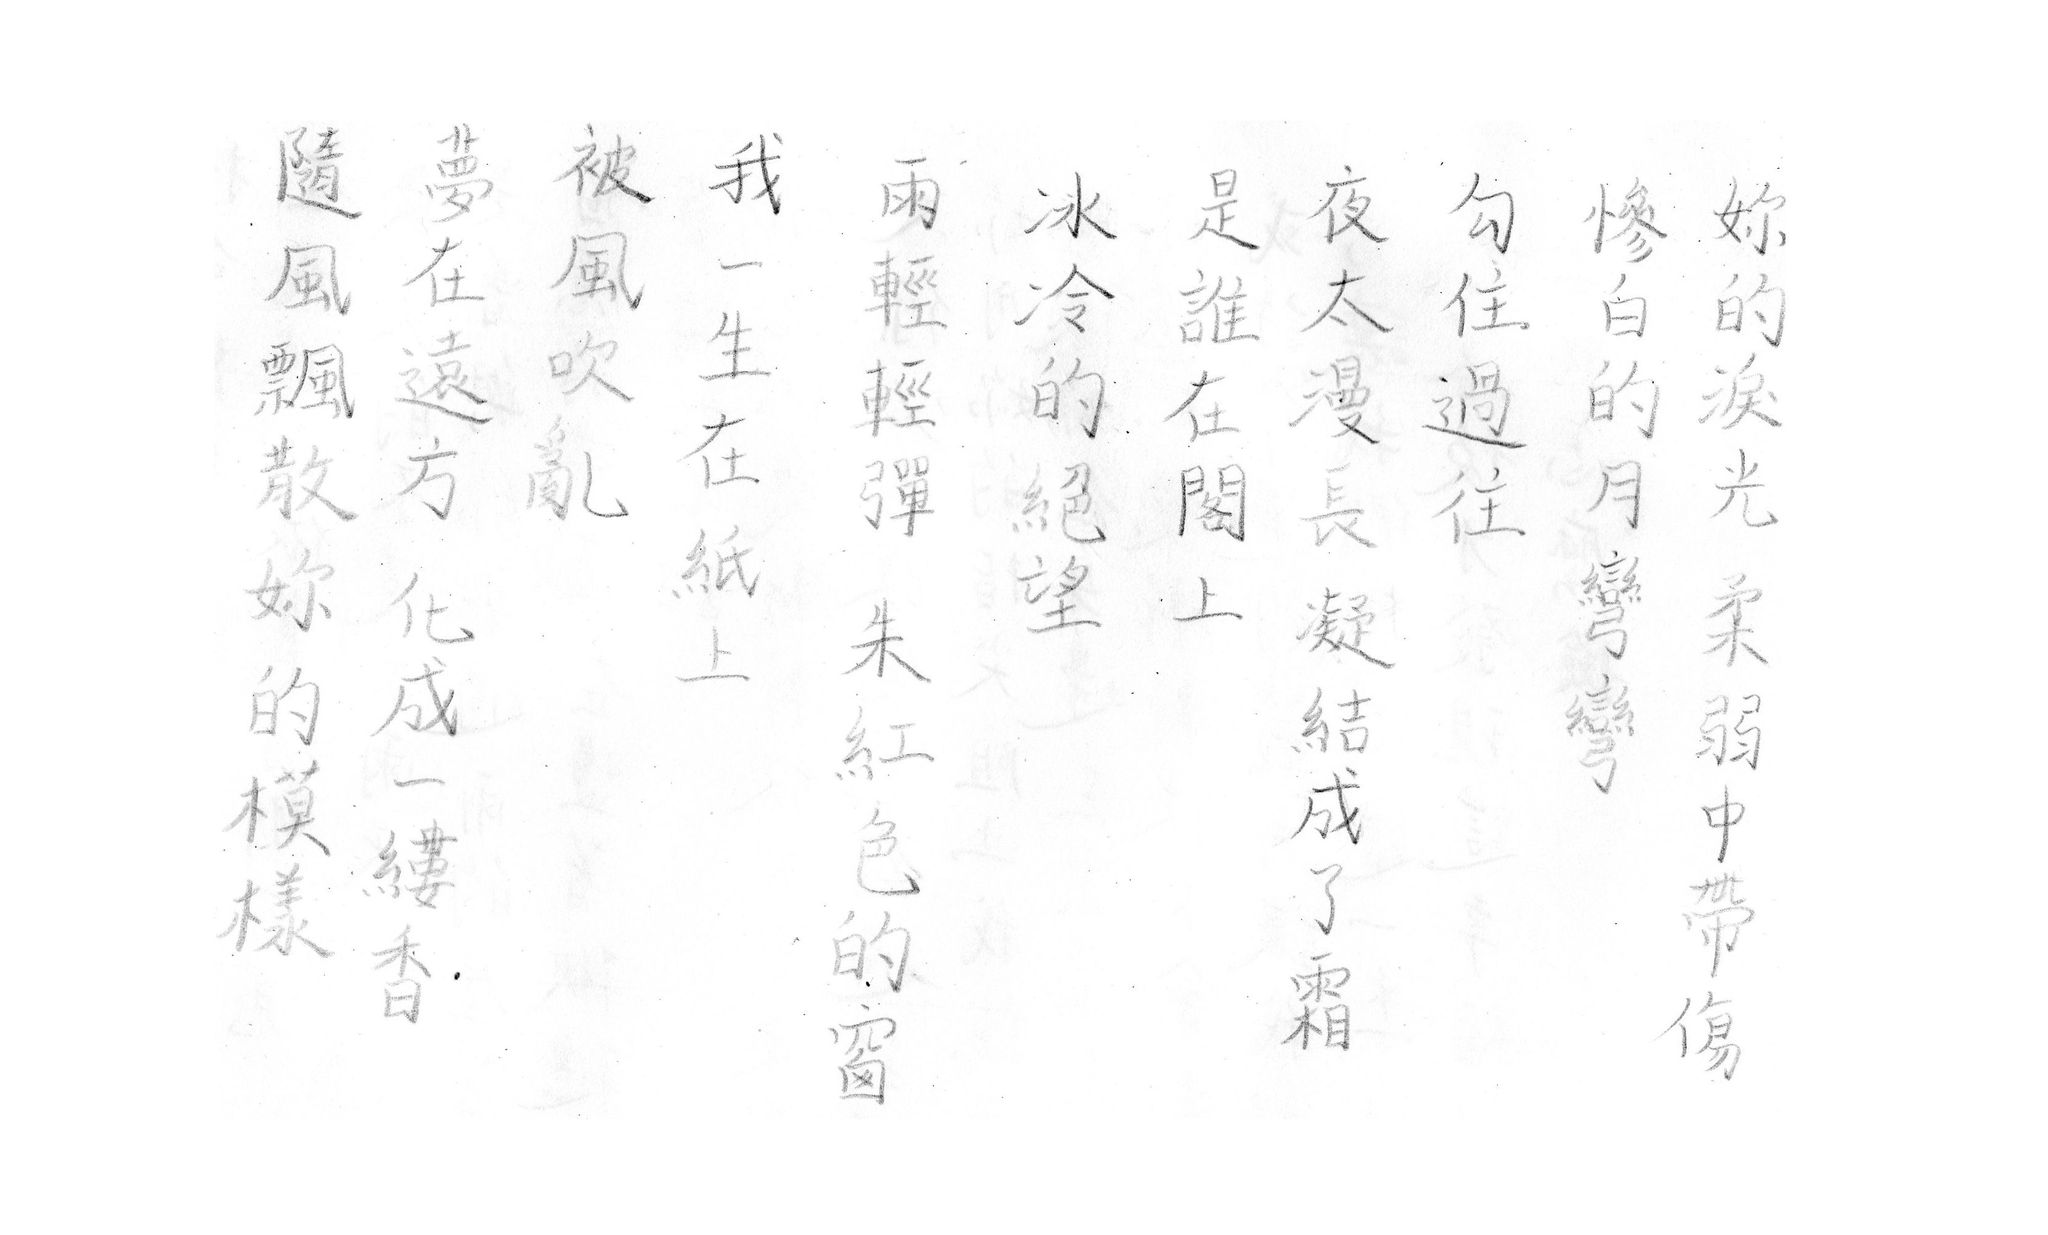 妳的淚光 柔弱中帶傷
慘白的月彎彎
勾住過往
夜太漫長 凝結成了霜
是誰在閣上
冰冷的絕望
雨輕輕彈 朱紅色的窗
我一生在紙上
被風吹亂
夢在遠方 化成一縷香
隨風飄散妳的模樣